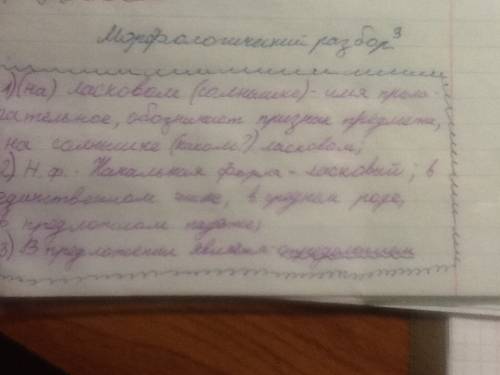 Морфологический разбор³
1) (на) ласковом (солнышке) - имя прила-
гательное, обозначает признак предмета,
на солнышке (каком?) ласковом;
2) Н.ф. - Начальная форма - ласковый; в
единственном числе, в среднем роде,
в предложном падеже;
3) В предложении является определением